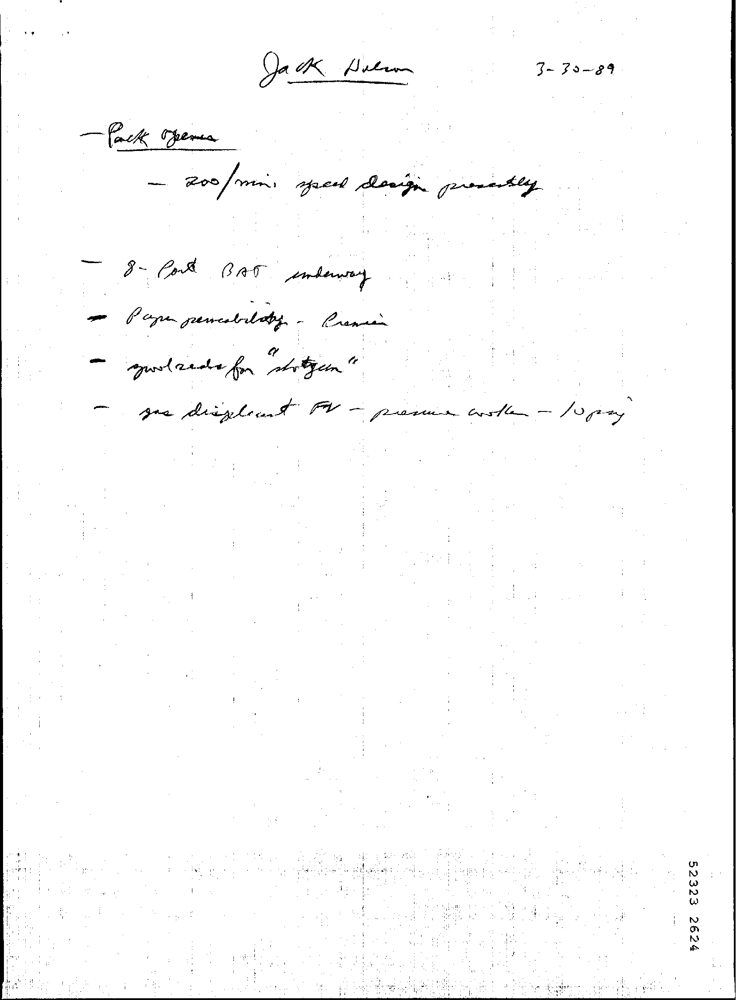 Jack 3-30-89
- Pack Opener
- 200/min. speed design presently
- 8-Port BAT underway
- Paper permeability - Premier
- for "shotgun"
- gas displacemt FV - pressure - 10 psig
52323 2624